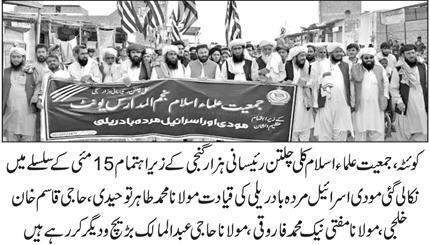 جمعیت علماء اسلام نجم المدارس یونٹ
مودی اور اسرائیل مردہ باد ریلی
کوئٹہ، جمعیت علماء اسلام کلی چلتن رئیسانی ہزار گنجی کے زیر اہتمام 15 مئی کے سلسلے میں
نکالی گئی مودی اسرائیل مردہ باد ریلی کی قیادت مولانا محمد طاہر توحیدی، حاجی قاسم خان
خلجی، مولانا مفتی نیک محمد فاروقی، مولانا حاجی عبدالمالک بڑیچ و دیگر کر رہے ہیں